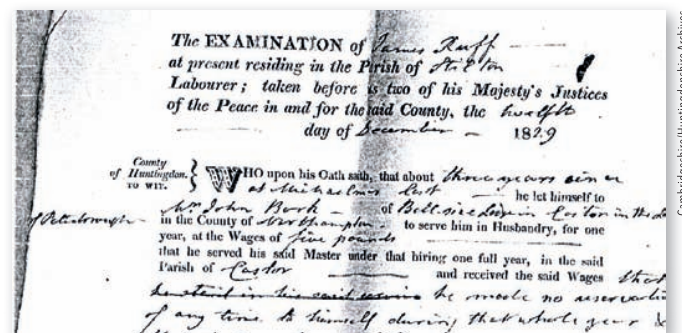 The EXAMINATION of James Ruff
at present residing in the Parish of Stilton
Labourer; taken before us two of his Majesty's Justices
of the Peace in and for the said County, the twelfth
day of December 1829
County
of Huntingdon.
TO WIT.
WHO upon his Oath saith, that about three years since
at Michaelmas last he let himself to
Mr John of in Castor in the
of Peterborough in the County of Northampton to serve him in Husbandry, for one
year, at the Wages of five pounds
that he served his said Master under that hiring one full year, in the said
Parish of Castor and received the said Wages that
he in his said service he made no reservation
of any time to himself during that whole year &
Cambridgeshire/Huntingdonshire Archives